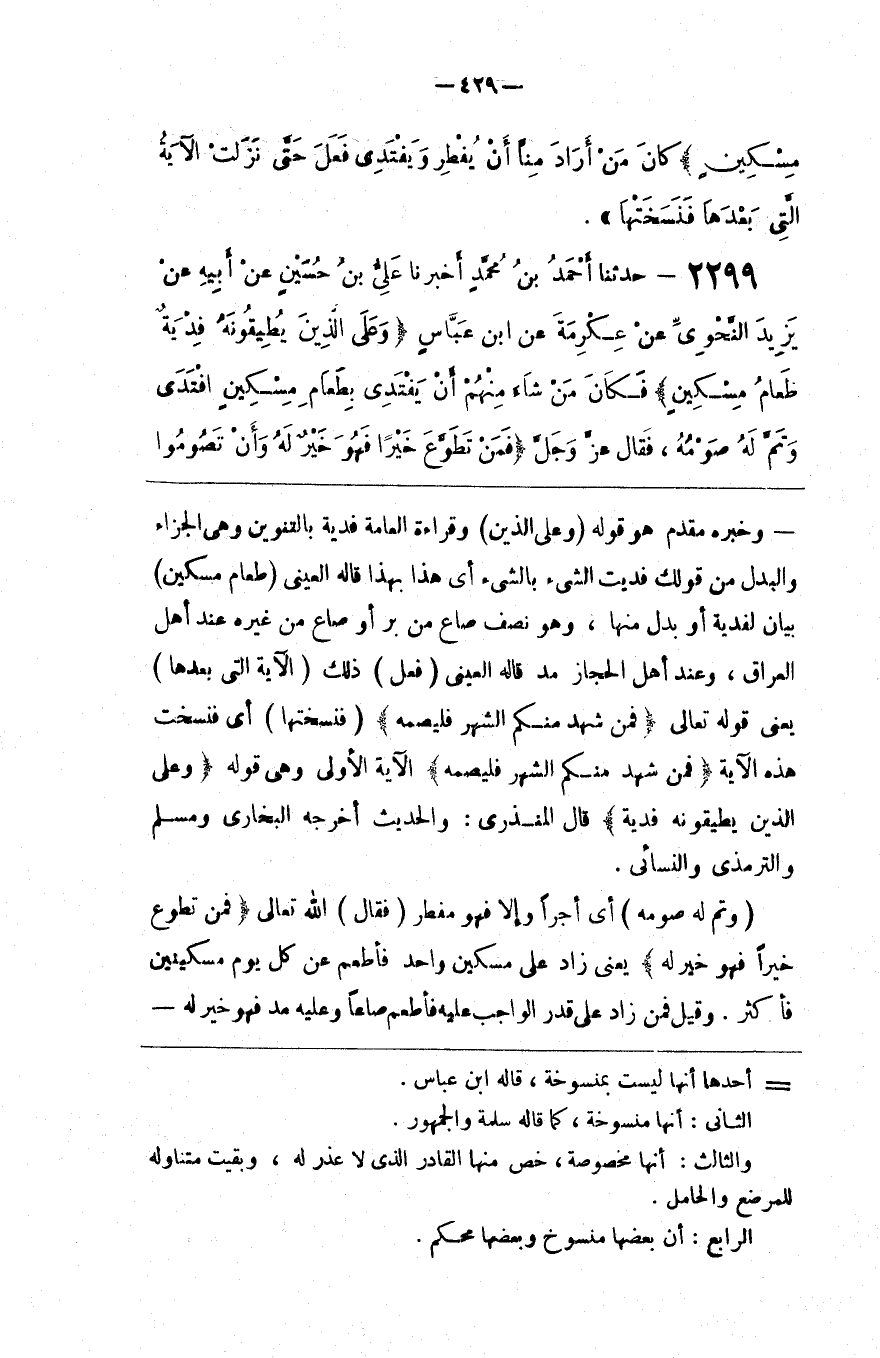 — ٤٢٩ —
مِسْكِينٍ ﴾ كَانَ مَنْ أَرَادَ مِنَّا أَنْ يُفْطِرَ وَيَفْتَدِى فَعَلَ حَتَّى نَزَلَتْ الْآيَةُ
الَّتِى بَعْدَهَا فَنَسَخَتْهَا » .
٢٢٩٩ — حدثنا أَحْمَدُ بنُ مُحمَّدٍ أخبرنا عَلِىُّ بنُ حُسَيْنٍ عنْ أَبِيهِ عنْ
يَزِيدَ النَّحْوِىِّ عنْ عِكْرِمَةَ عن ابن عَبَّاسٍ ﴿ وَعَلَى الَّذِينَ يُطِيقُونَهُ فِدْيَةٌ
طَعَامُ مِسْكِينٍ ﴾ فَكَانَ مَنْ شَاءَ مِنْهُمْ أَنْ يَفْتَدِى بِطَعَامِ مِسْكِينٍ افْتَدَى
وَتَمَّ لَهُ صَوْمُهُ ، فَقَال عزَّ وَجَلَّ ﴿ فَمَنْ تَطَوَّعَ خَيْرًا فَهُوَ خَيْرٌ لَهُ وَأَنْ تَصُومُوا
— وخبره مقدم هو قوله (وعلى الذين) وقراءة العامة فدية بالتنوين وهى الجزاء
والبدل من قولك فديت الشىء بالشىء أى هذا بهذا قاله العينى (طعام مسكين)
بيان لفدية أو بدل منها ، وهو نصف صاع من بر أو صاع من غيره عند أهل
العراق ، وعند أهل الحجاز مد قاله العينى ( فعل ) ذلك ( الآية التى بعدها )
يعنى قوله تعالى ﴿ فمن شهد منكم الشهر فليصمه ﴾ ( فنسختها ) أى فنسخت
هذه الآية ﴿ فمن شهد منكم الشهر فليصمه ﴾ الآية الأولى وهى قوله ﴿ وعلى
الذين يطيقونه فدية ﴾ قال المنذرى : والحديث أخرجه البخارى ومسلم
والترمذى والنسائى .
( وتم له صومه ) أى أجراً وإلا فهو مفطر ( فقال ) الله تعالى ﴿ فمن تطوع
خيراً فهو خير له ﴾ يعنى زاد على مسكين واحد فأطعم عن كل يوم مسكينين
فأكثر . وقيل فمن زاد على قدر الواجب عليه فأطعم صاعاً وعليه مد فهو خير له —
= أحدها أنها ليست بمنسوخة ، قاله ابن عباس .
الثانى : أنها منسوخة ، كما قاله سلمة والجمهور .
والثالث : أنها مخصوصة ، خص منها القادر الذى لا عذر له ، وبقيت متناوله
للمرضع والحامل .
الرابع : أن بعضها منسوخ وبعضها محكم .